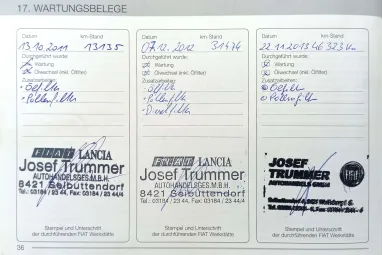 17. WARTUNGSBELEGE
Datum km-Stand
13.10.2011 13135
Durchgeführt wurde:
Wartung
Ölwechsel (inkl. Ölfilter)
Zusatzarbeiten:
- Ölfilter
- Pollenfilter
FIAT LANCIA
Josef Trummer
AUTOHANDELSGES.M.B.H.
8421 Seibuttendorf
Tel.: 03184 / 23 44, Fax: 03184 / 23 44/4
Stempel und Unterschrift
der durchführenden FIAT Werkstätte
Datum km-Stand
07.12.2012 31474
Durchgeführt wurde:
Wartung
Ölwechsel (inkl. Ölfilter)
Zusatzarbeiten:
- Ölfilter
- Pollenfilter
- Dieselfilter
FIAT LANCIA
Josef Trummer
AUTOHANDELSGES.M.B.H.
8421 Seibuttendorf
Tel.: 03184 / 23 44, Fax: 03184 / 23 44/4
Stempel und Unterschrift
der durchführenden FIAT Werkstätte
Datum km-Stand
22.11.2013 46323 km
Durchgeführt wurde:
Wartung
Ölwechsel (inkl. Ölfilter)
Zusatzarbeiten:
Ölfilter
Pollenfilter
JOSEF
TRUMMER
Stempel und Unterschrift
der durchführenden FIAT Werkstätte
36